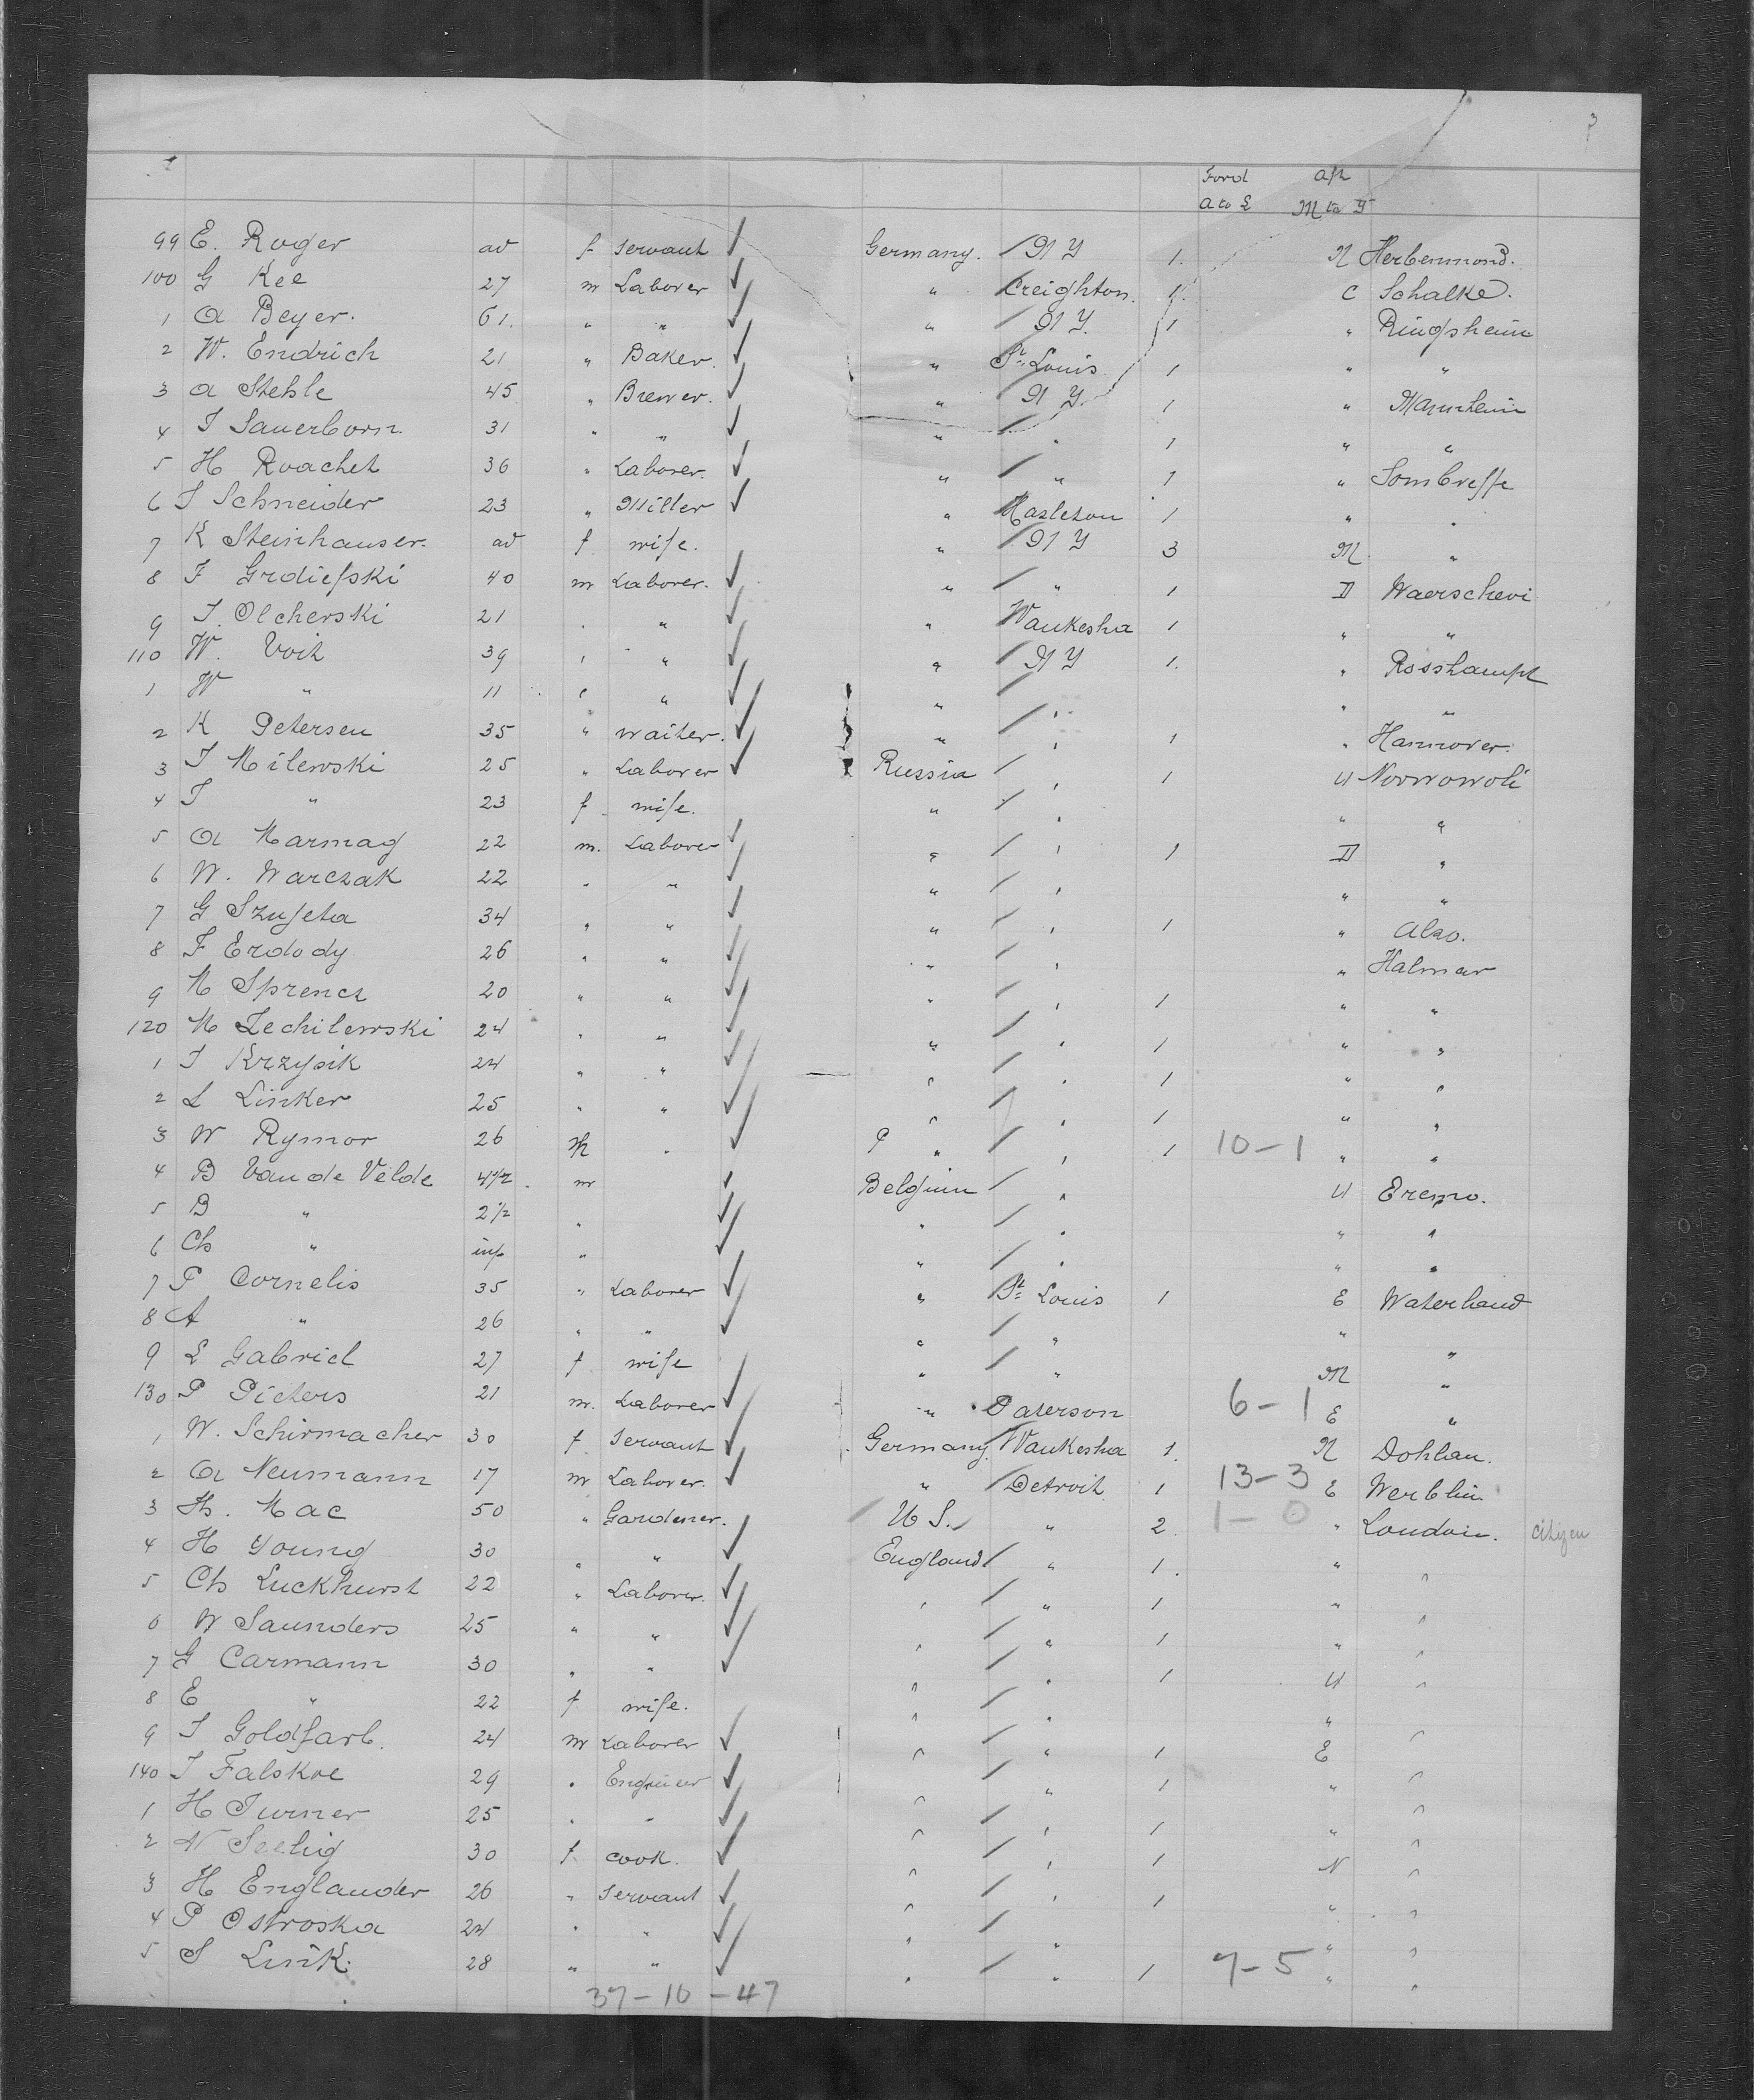 3
Ford Aft
A to L M to
99 E. Roger ad f Servant ✓ Germany. / N Y 1. N Herbenmond.
100 G Kee 27 m Laborer ✓ " Creighton. 1. C Schalke.
1 A Beyer. 61. " " ✓ " / N Y. 1 " Ringsheim
2 W. Endrich 21 " Baker. ✓ " St Louis 1 " "
3 A Stehle 45 " Brewer. ✓ " / N Y. 1 " Mannheim
4 J Sauerborn. 31 " " ✓ " / " 1 " "
5 H Roachet 36 " Laborer. ✓ " / " 1 " Sombreffe
6 J Schneider 23 " Miller ✓ " Hazleton 1 " "
7 K Steinhauser. ad f wife. " / N Y 3 M "
8 F Grdiefski 40 m Laborer. ✓ " / " 1 D Waerschevi
9 J. Olcherski 21 " " ✓ " Waukesha 1 " "
110 W. Voit 39 " " ✓ " / N Y 1. " Rosshaupt
1 W " 11 " " ✓ " / " "
2 K Petersen 35 " waiter. ✓ " / " 1 " Hannover.
3 J Milewski 25 " Laborer ✓ Russia / " 1 U Nowowoli
4 J " 23 f wife. " / " " "
5 A Marmag 22 m. Laborer ✓ " / " 1 D "
6 W. Warczak 22 " " ✓ " / " " "
7 G Szufeta 34 " " ✓ " / " 1 " Also.
8 F Erdody 26 " " ✓ " / " " Halmar
9 M Sprencz 20 " " ✓ " / " 1 " "
120 M Zechilewski 24 " " ✓ " / " 1 " "
1 J Krzysik 24 " " ✓ " / " 1 " "
2 L Linker 25 " " ✓ " / " 1 " "
3 W Rymor 26 m " ✓ " / " 1 10-1 " "
4 B Van de Velde 4½ m ✓ Belgium / " U Eremo.
5 B " 2½ " ✓ " / " " "
6 Ch " inf " ✓ " / " " "
7 P Cornelis 35 " Laborer ✓ " St Louis 1 E Waterland
8 A " 26 " " ✓ " / " " "
9 L Gabriel 27 f wife " / " M "
130 P Pieters 21 m. Laborer ✓ " Paterson 6-1 E "
1 W. Schirmacher 30 f Servant ✓ Germany. Waukesha 1. N Dohlau.
2 A Neumann 17 m Laborer. ✓ " / Detroit 1 13-3 E Werblin
3 Th. Mac 50 " Gardener. U S. / " 2. 1-0 " London. Citizen
4 H Young 30 " " ✓ England / " 1. " "
5 Ch Luckhurst 22 " Laborer. ✓ " / " 1 " "
6 W Saunders 25 " " ✓ " / " 1 " "
7 G Carmann 30 " " ✓ " / " 1 U "
8 E " 22 f wife. " / " " "
9 J Goldfarb. 24 m Laborer ✓ " / " 1 E "
140 J Falskoe 29 " Engineer ✓ " / " 1 " "
1 H Turner 25 " " ✓ " / " 1 " "
2 N Seelig 30 f cook. ✓ " / " 1 N "
3 H Englander 26 " Servant ✓ " / " 1 " "
4 P Ostroska 24 " " ✓ " / " " "
5 S Link. 28 " " ✓ " / " 1 7-5 " "
37-10-47